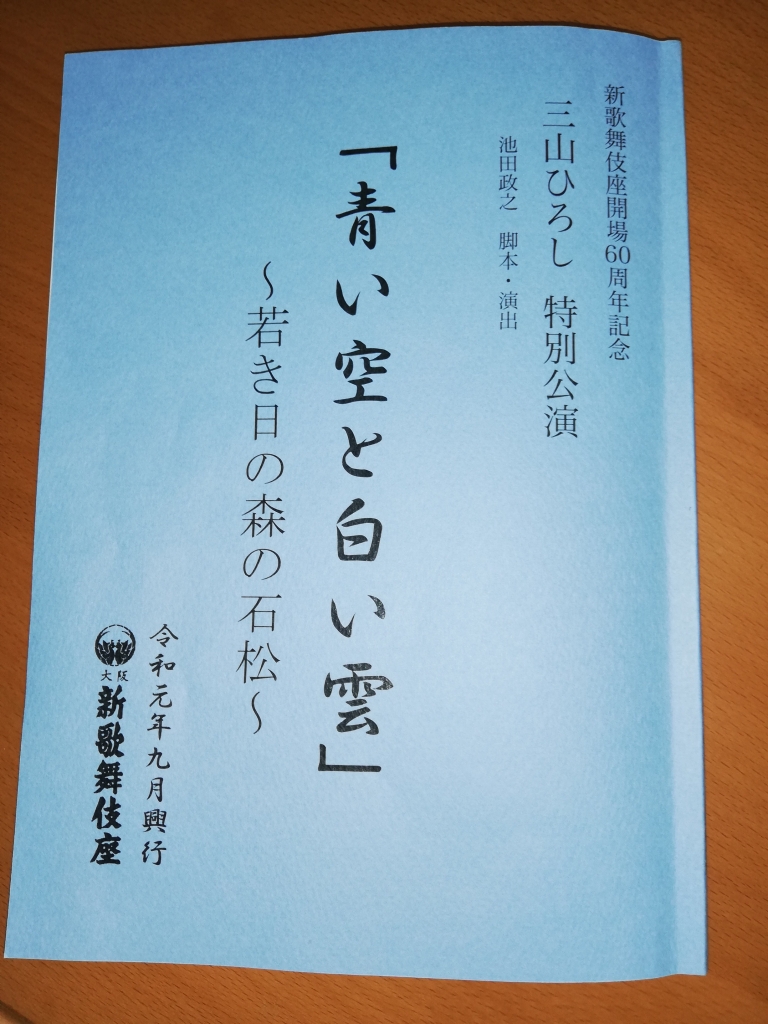 新歌舞伎座開場60周年記念
三山ひろし 特別公演
池田政之 脚本・演出
「青い空と白い雲」
~若き日の森の石松~
令和元年九月興行
大阪
新歌舞伎座